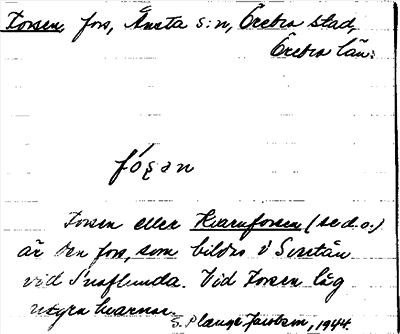 Forsen, fors, Ånsta s:n, Örebro stad,
Örebro län.
fóʂən
Forsen eller Kvarnforsen (se d.o.)
är den fors, som bildas i Svartån
vid Snaflunda. Vid Forsen låg
några kvarnar.
E. Plauge Jacobson, 1944